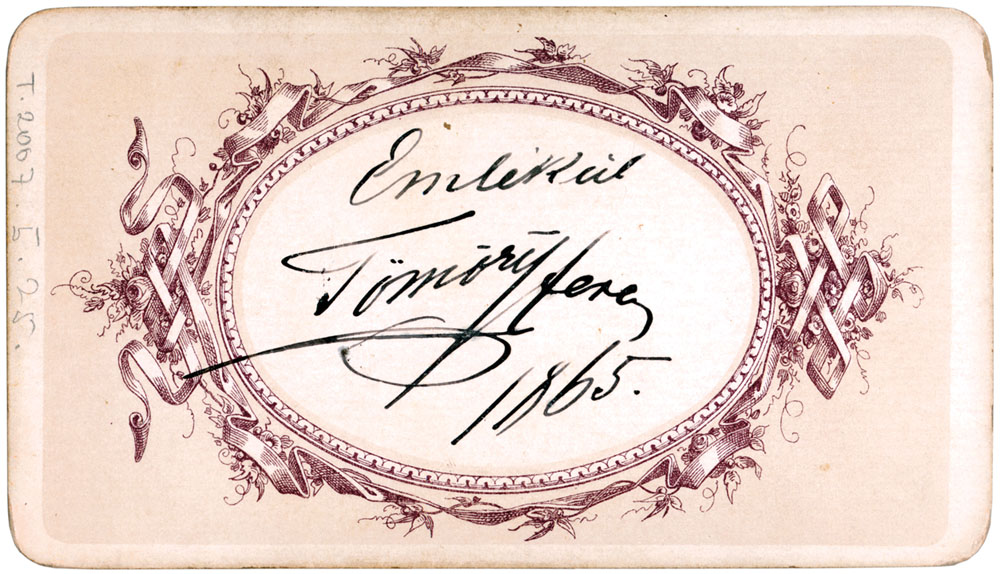 Emlékül
Tömöry ferenc
1865.
T. 2007. 5. 25.